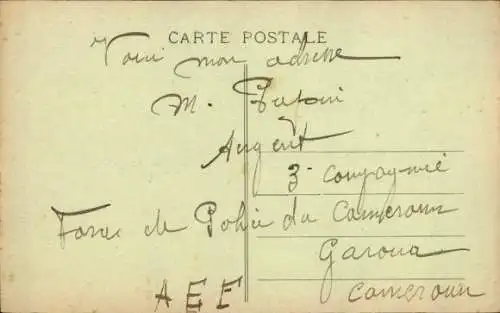 CARTE POSTALE
Voici mon adresse
M.
Sergent
3e Compagnie
Forces de Police du Cameroun
Garoua
AEF
Cameroun